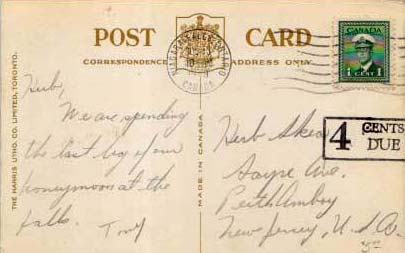 POST CARD
CORRESPONDENCE
ADDRESS ONLY
CANADA
1 CENT 1
NIAGARA FALLS ONTARIO
CANADA
4 CENTS DUE
THE HARRIS LITHO. CO. LIMITED, TORONTO.
MADE IN CANADA
Herb,
We are spending
the last leg of our
honeymoon at the
falls.
Tony
Herb
Sayre Ave.
Perth Amboy
New Jersey, U.S.A.